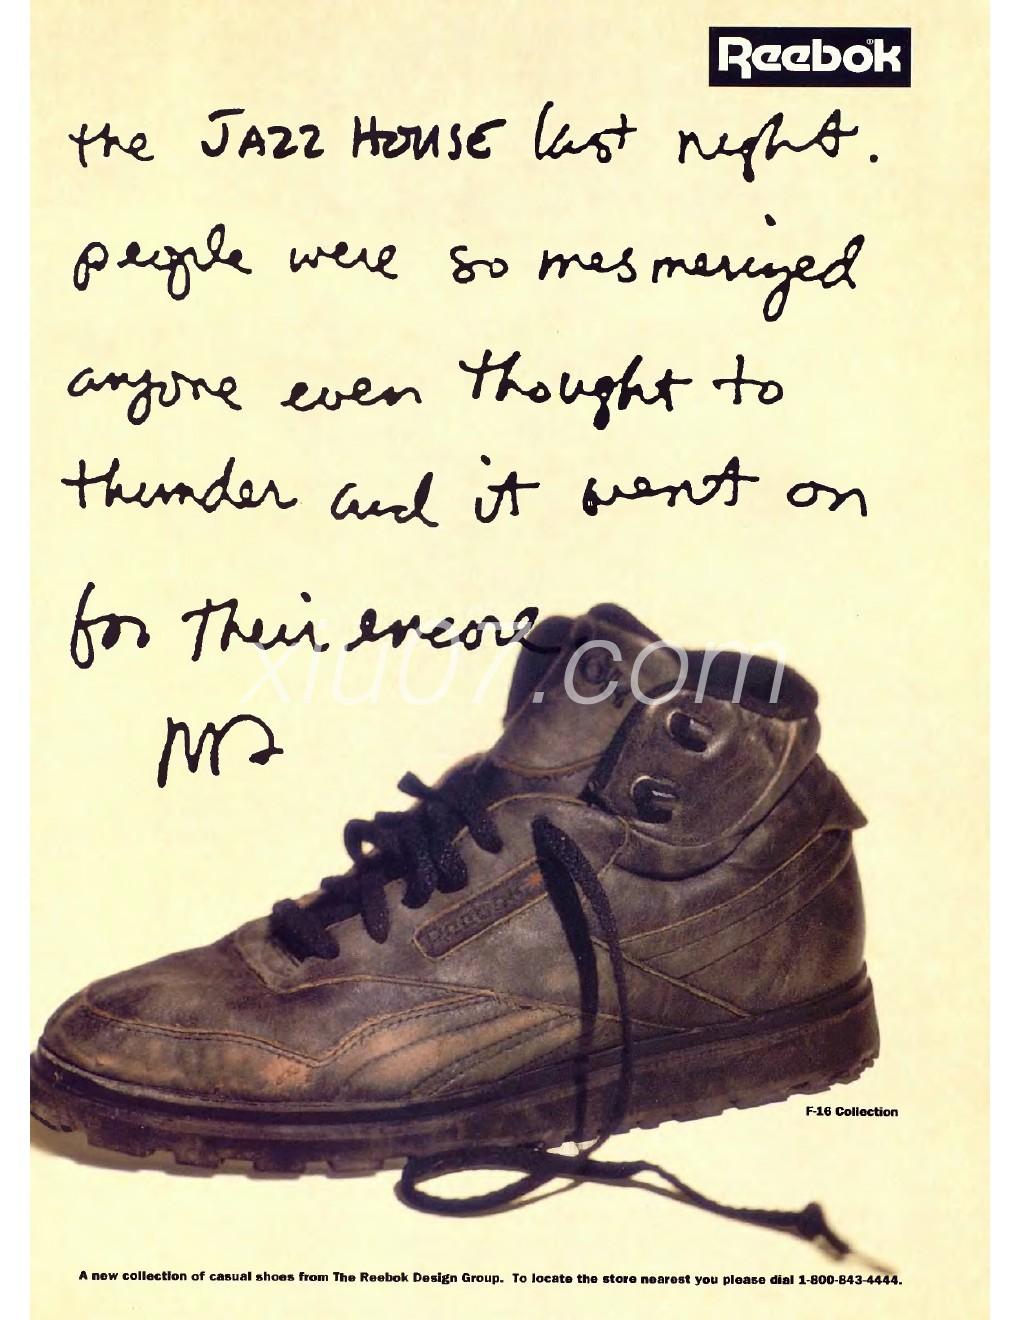 Reebok®
the JAZZ HOUSE last night.
people were so mesmerized
anyone even thought to
thunder and it went on
for their encore
xiu07.com
Reebok
F-16 Collection
A new collection of casual shoes from The Reebok Design Group. To locate the store nearest you please dial 1-800-843-4444.